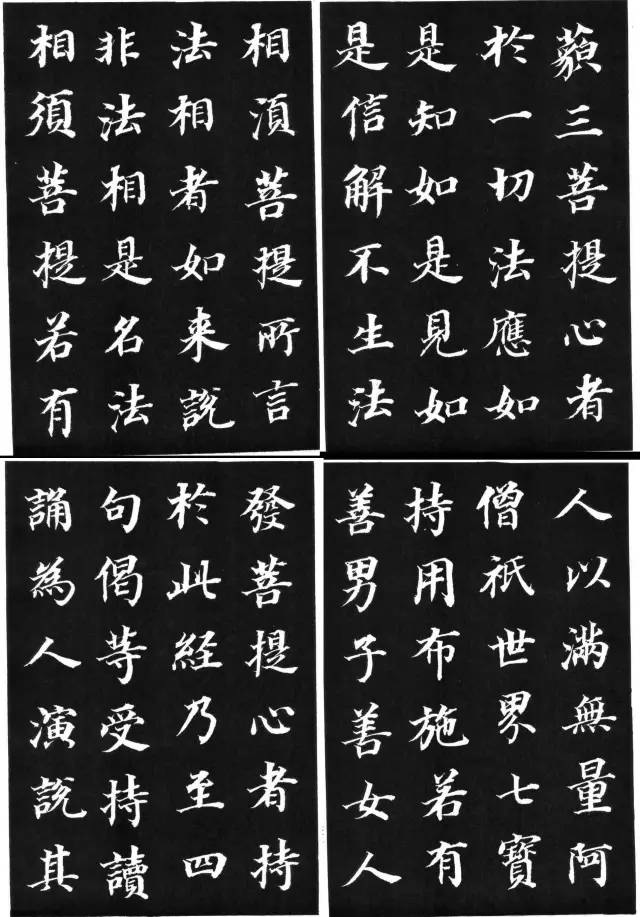 藐三菩提心者
於一切法應如
是知如是見如
是信解不生法
相湏菩提所言
法相者如来說
非法相是名法
相須菩提若有
人以滿無量阿
僧祇世界七寶
持用布施若有
善男子善女人
發菩提心者持
於此經乃至四
句偈等受持讀
誦為人演說其